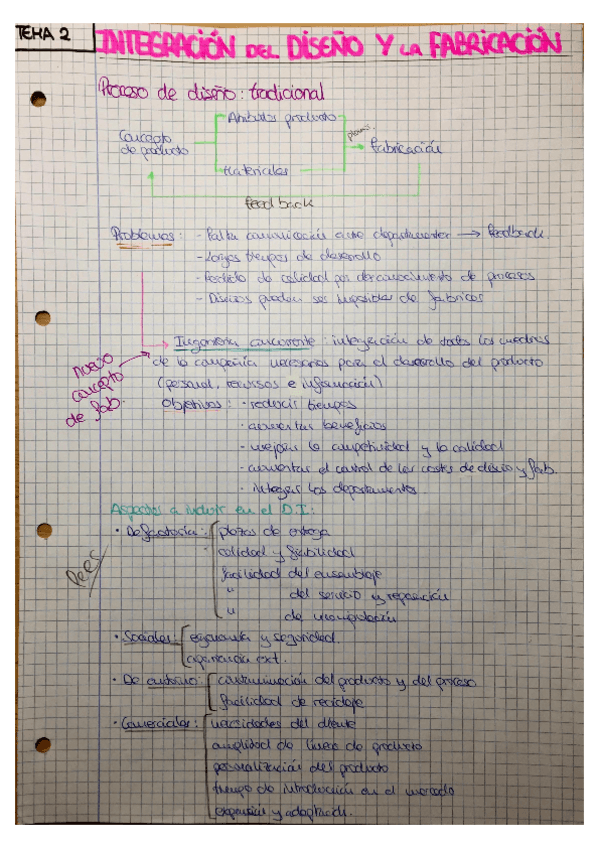 TEMA 2
INTEGRACIÓN DEL DISEÑO Y LA FABRICACIÓN
Proceso de diseño: tradicional
Concepto de producto
Atributos producto
Materiales
planos
Fabricación
Feedback
Problemas: - Falta comunicación entre departamentos → Feedback
- Largos tiempos de desarrollo
- Pérdida de calidad por desconocimiento de procesos
- Diseños pueden ser imposibles de fabricar
nuevo concepto de fab.
Ingeniería concurrente: integración de todos los
de la compañía necesarios para el desarrollo del producto
(personal, recursos e información)
Objetivos: · reducir tiempos
· aumentar beneficios
· mejorar la competitividad y la calidad
· aumentar el control de los costes de diseño y fab.
· integrar los departamentos
Aspectos a incluir en el D.I:
· De factoría: plazos de entrega
calidad y fiabilidad
facilidad del ensamblaje
" del servicio y reparación
" de manipulación
· Sociales: ergonomía y seguridad.
apariencia ext.
· De entorno: contaminación del producto y del proceso
facilidad de reciclaje
· Comerciales: necesidades del cliente
amplitud de línea de producto
personalización del producto
tiempo de introducción en el mercado
expansión y adaptación.